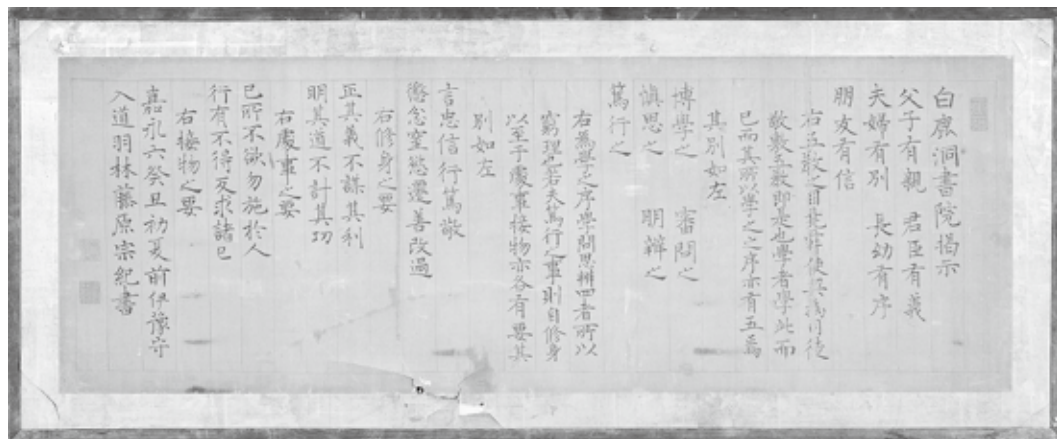 白鹿洞書院掲示
父子有親　君臣有義
夫婦有別　長幼有序
朋友有信
右五教之目堯舜使契為司徒
敬敷五教即是也學者學此而
已而其所以學之之序亦有五焉
其別如左
博學之　審問之
慎思之　明辨之
篤行之
右為學之序學問思辨四者所以
窮理也若夫篤行之事則自修身
以至于處事接物亦各有要其
別如左
言忠信行篤敬
懲忿窒慾遷善改過
右修身之要
正其義不謀其利
明其道不計其功
右處事之要
己所不欲勿施於人
行有不得反求諸己
右接物之要
嘉永六癸丑初夏前伊豫守
入道羽林藤原宗紀書